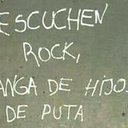 ESCUCHEN
ROCK,
MANGA DE HIJOS
DE PUTA